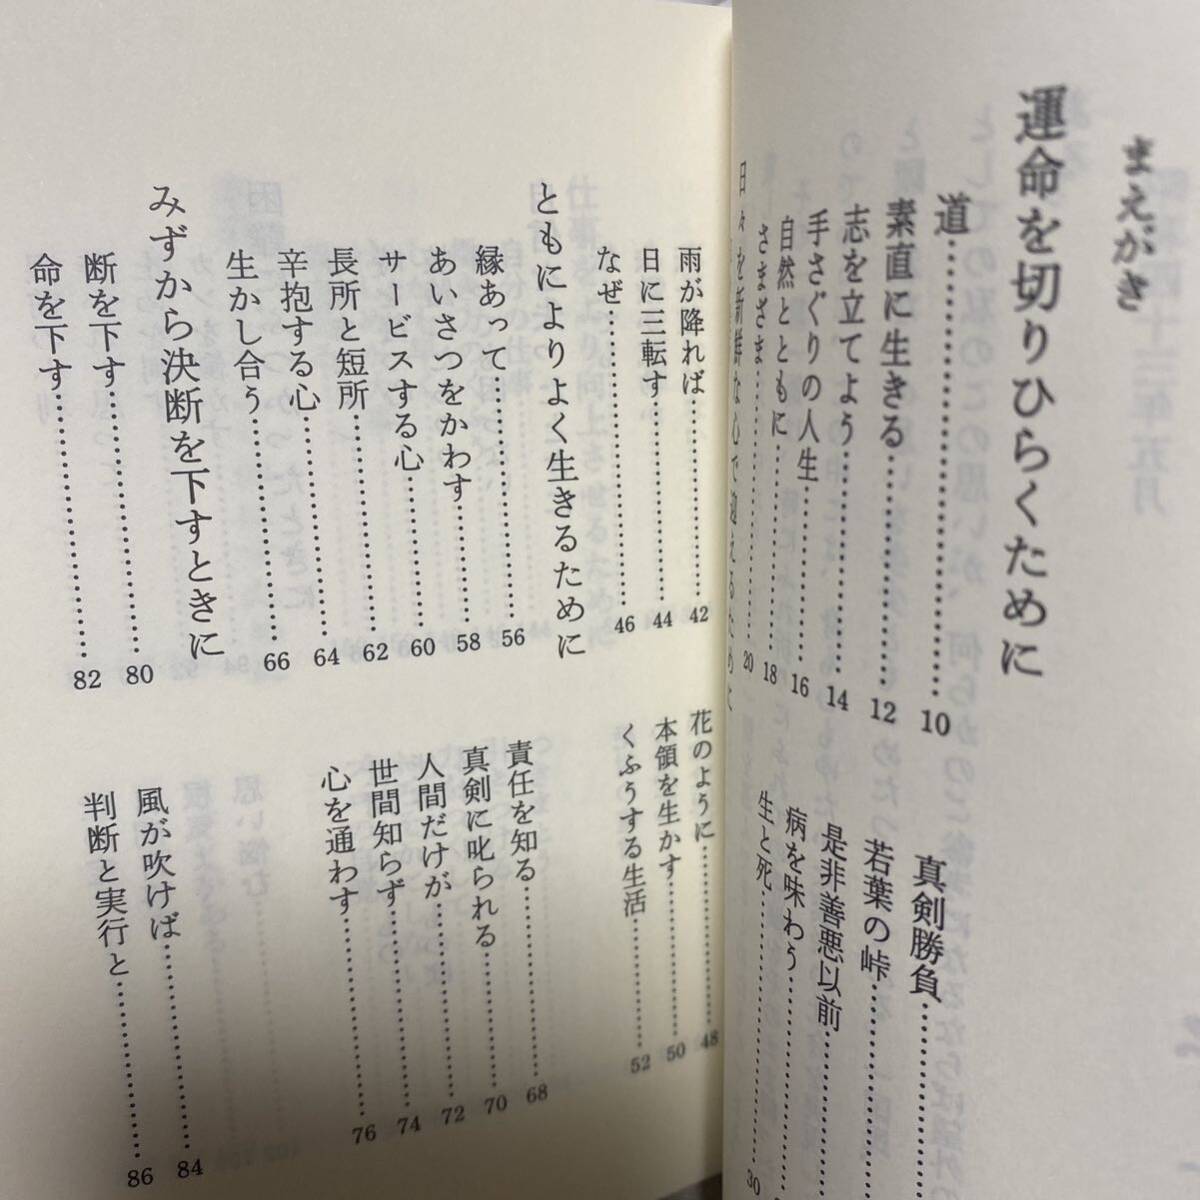 まえがき
運命を切りひらくために
道…………10
素直に生きる…………12
志を立てよう…………14
手さぐりの人生…………16
自然とともに…………18
さまざま…………20
真剣勝負…………
若葉の峠…………
是非善悪以前…………
病を味わう…………
生と死…………30
日々を新鮮な心で迎えるために
雨が降れば…………42
日に三転す…………44
なぜ…………46
花のように…………48
本領を生かす…………50
くふうする生活…………52
ともによりよく生きるために
縁あって…………56
あいさつをかわす…………58
サービスする心…………60
長所と短所…………62
辛抱する心…………64
生かし合う…………66
責任を知る…………68
真剣に叱られる…………70
人間だけが…………72
世間知らず…………74
心を通わす…………76
みずから決断を下すときに
断を下す…………80
命を下す…………82
風が吹けば…………84
判断と実行と…………86